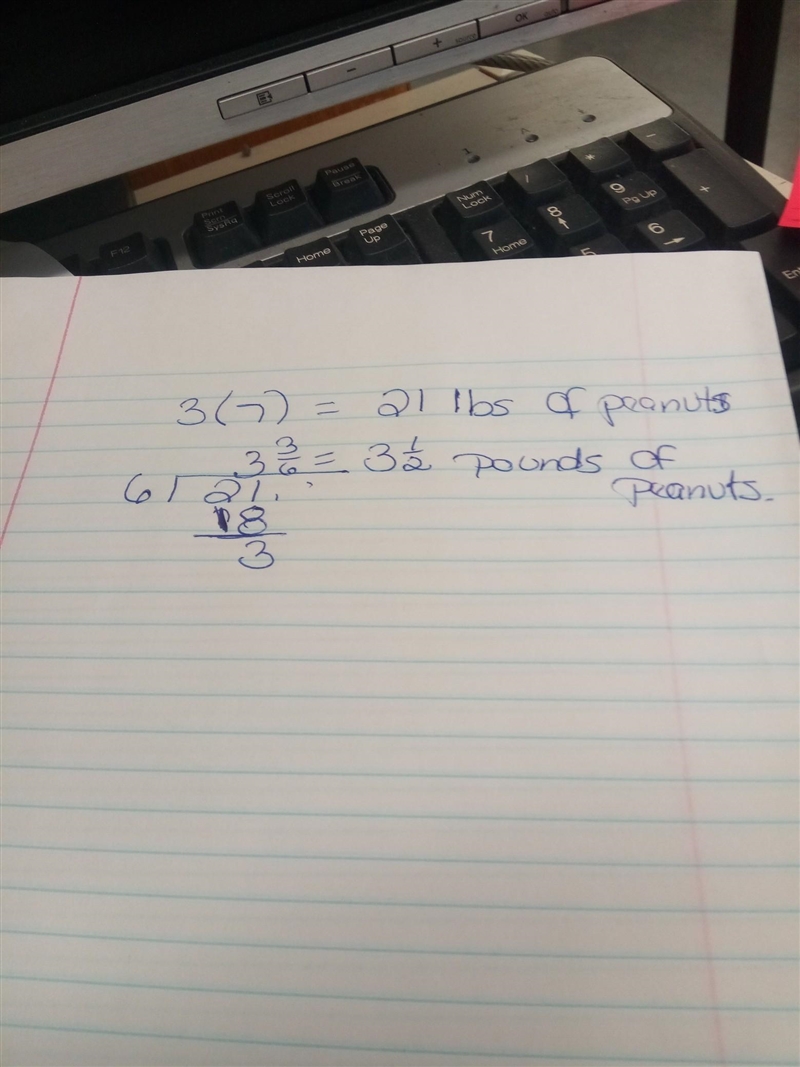 OK
- + source
Print Scrn SysRq Scroll Lock Pause Break
1 A
F12 Home Page Up Num Lock / * -
7 Home 8 9 Pg Up +
5 6 Ent
3(7) = 21 lbs of peanuts
3 3/6 = 3 1/2 pounds of
6) 21. peanuts.
18
3